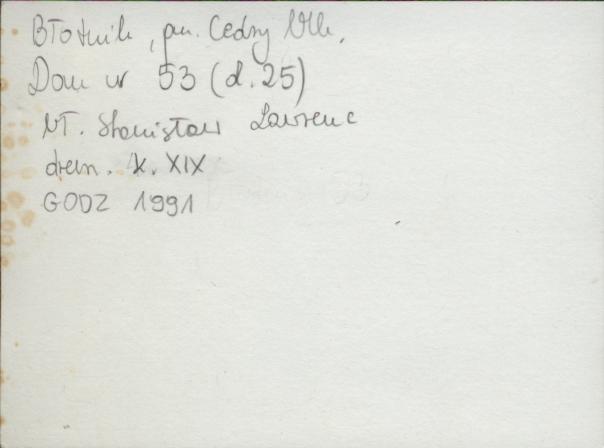 Błotnik, gm. Cedry Wlk.
Dom nr 53 (d. 25)
wł. Stanisław Lawrenc
drewn. k. XIX
GODZ 1991